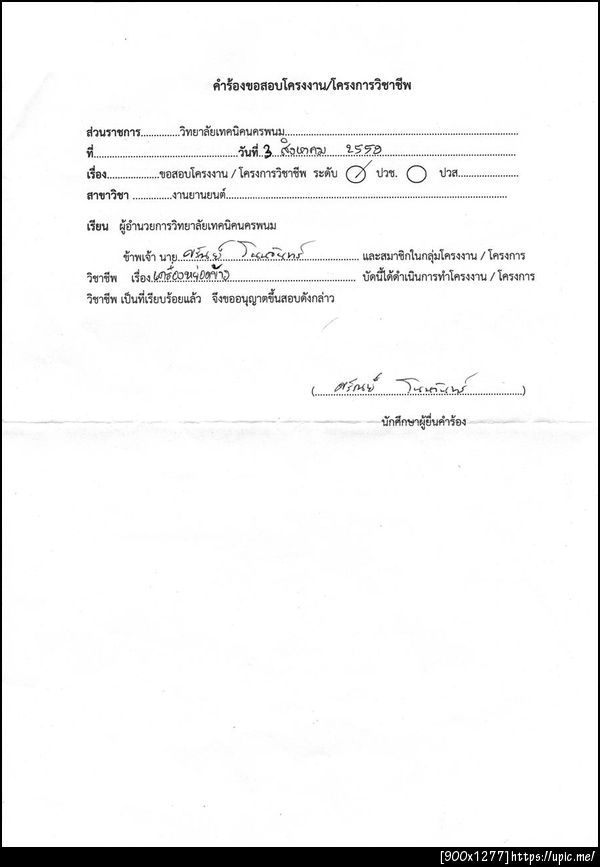 คำร้องขอสอบโครงงาน/โครงการวิชาชีพ
ส่วนราชการ..............วิทยาลัยเทคนิคนครพนม
ที่..............วันที่..3 สิงหาคม 2559
เรื่อง..............ขอสอบโครงงาน / โครงการวิชาชีพ ระดับ ปวช. ปวส.
สาขาวิชา ..............งานยานยนต์
เรียน ผู้อำนวยการวิทยาลัยเทคนิคนครพนม
ข้าพเจ้า นาย ศรัณย์ และสมาชิกในกลุ่มโครงงาน / โครงการ
วิชาชีพ เรื่อง เครื่องหยอดข้าว บัดนี้ได้ดำเนินการทำโครงงาน / โครงการ
วิชาชีพ เป็นที่เรียบร้อยแล้ว จึงขออนุญาตขึ้นสอบดังกล่าว
( ศรัณย์ )
นักศึกษาผู้ยื่นคำร้อง
[900x1277]https://upic.me/